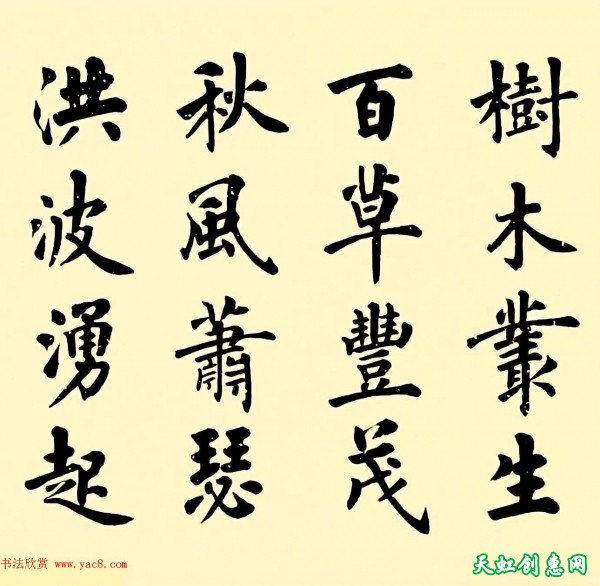 樹木叢生
百草豐茂
秋風蕭瑟
洪波湧起
书法欣赏 www.yac8.com
天虹创惠网